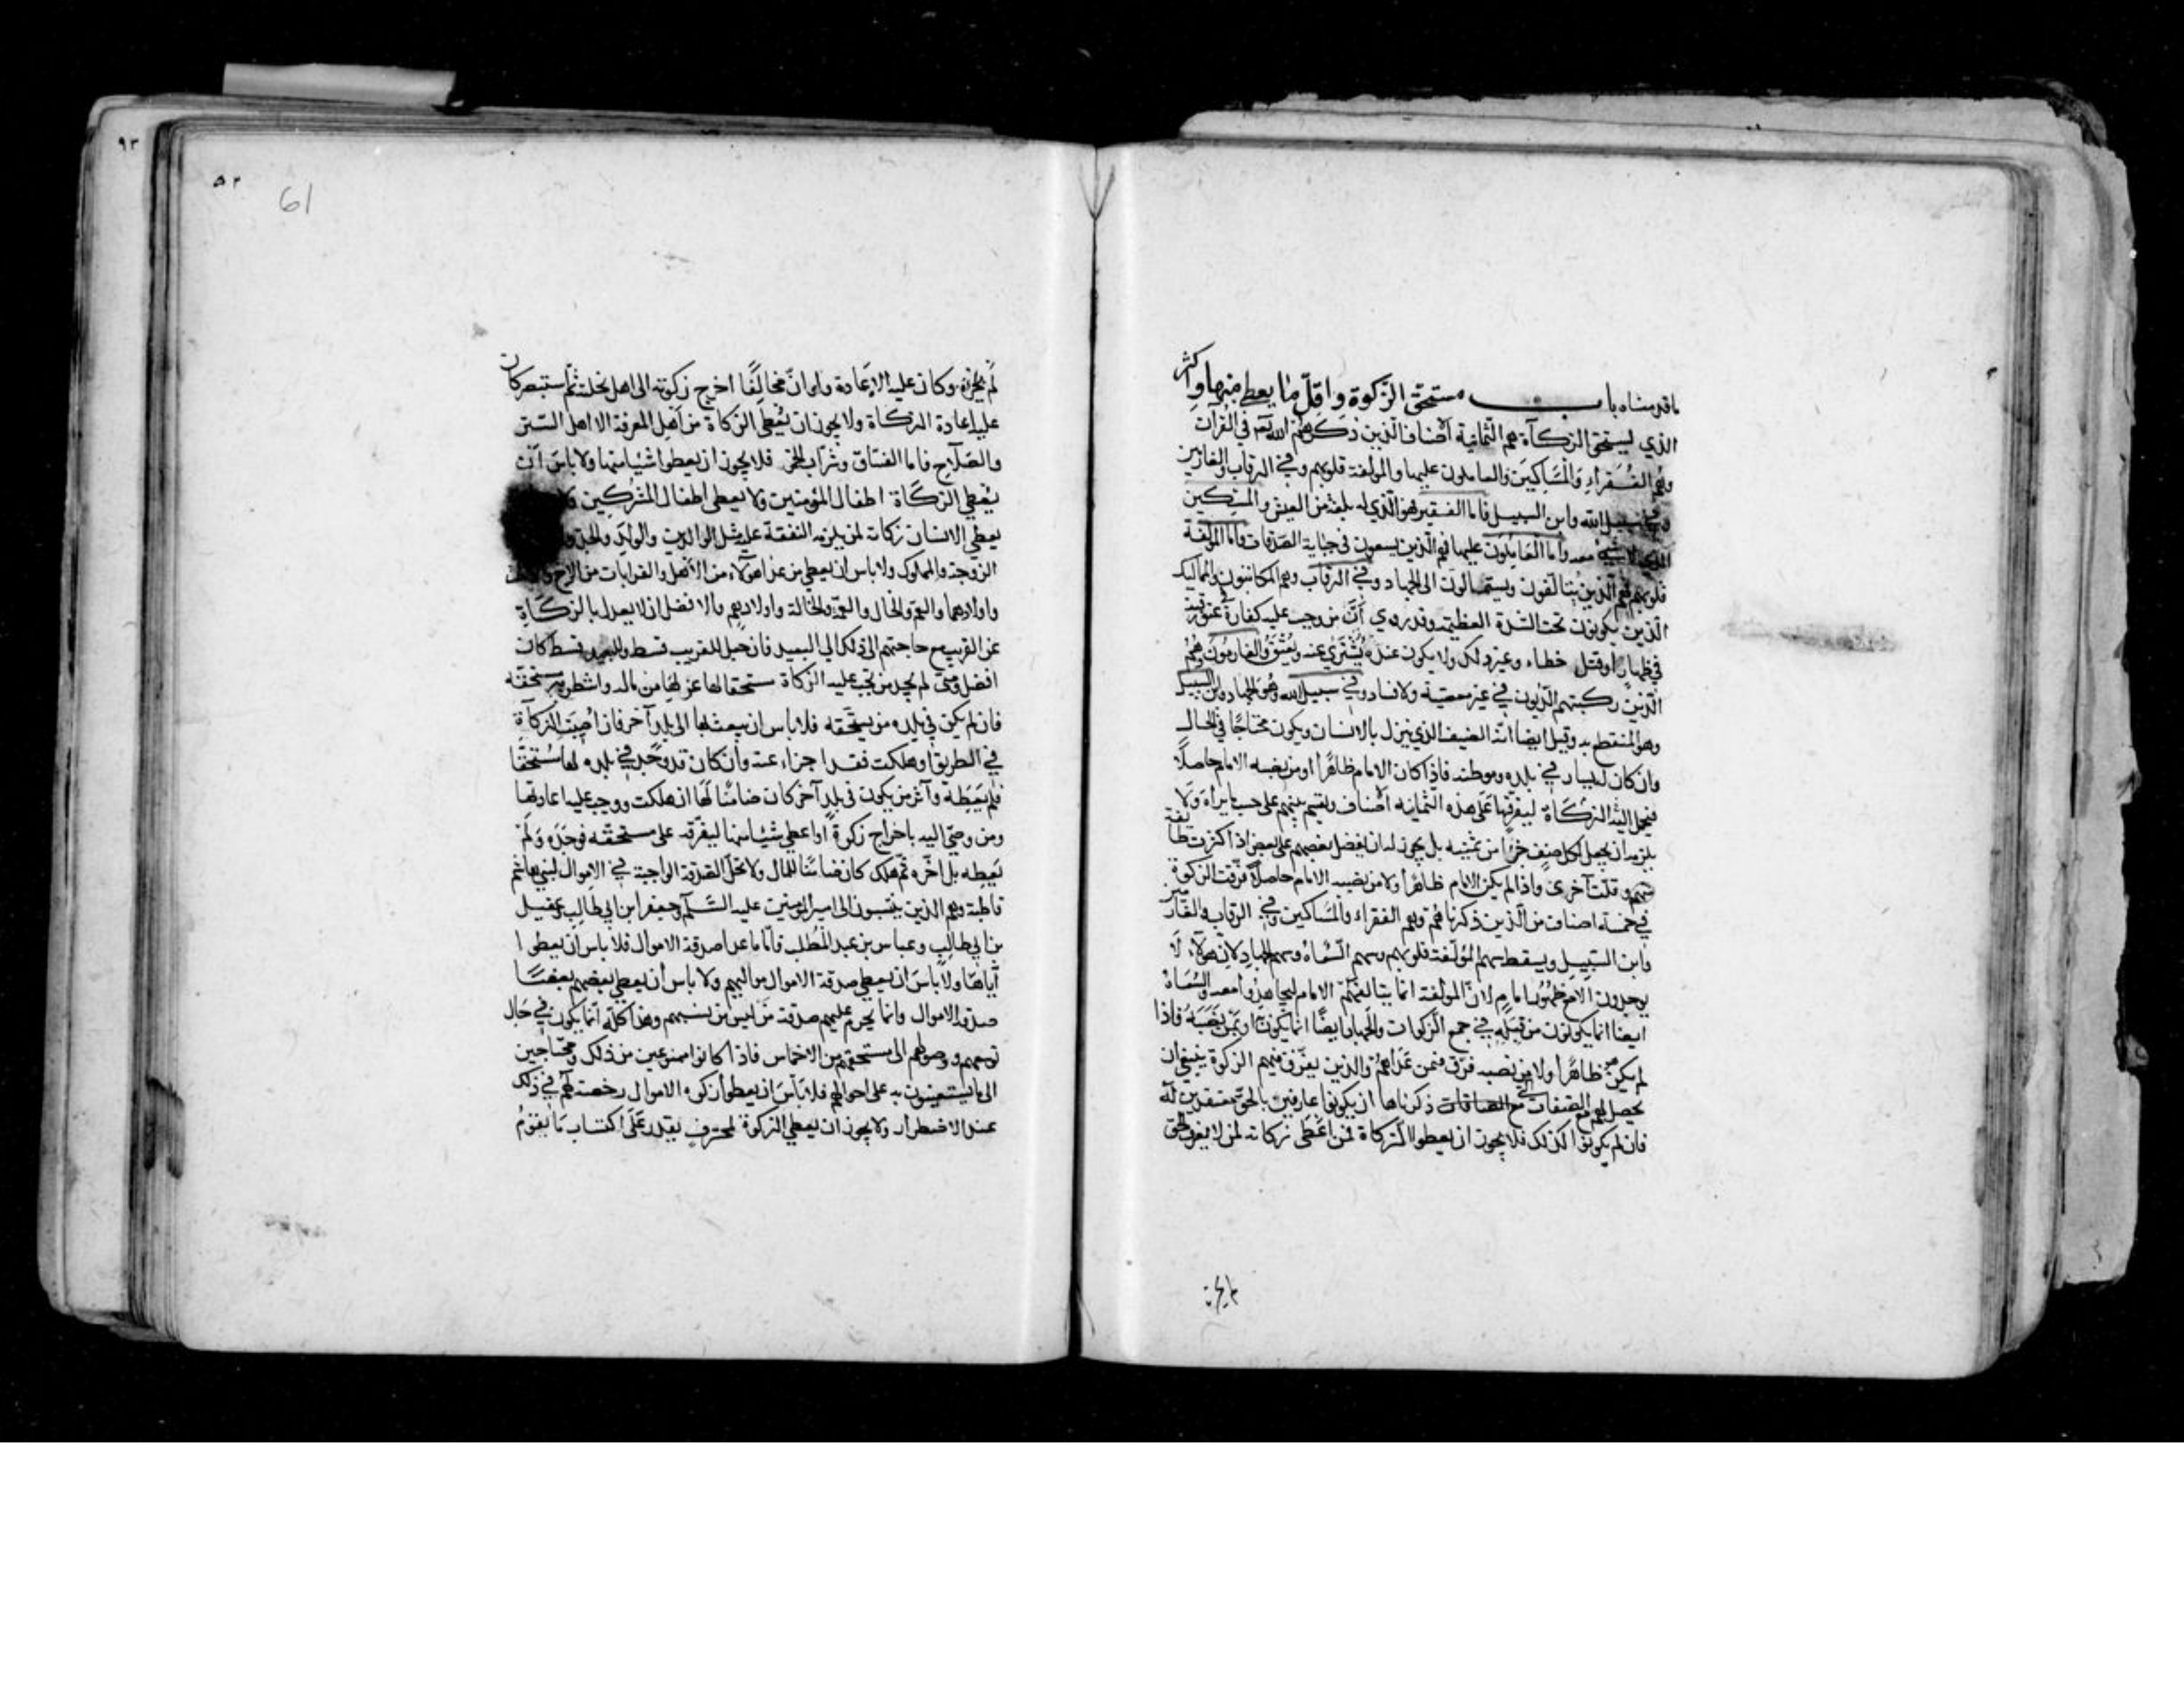 ما قدمناه باب مستحق الزكوة واقل ما يعطى منها واكثر
الذي يستحق الزكاة هم الثمانية أصناف الذين ذكرهم الله تع في القرآن
وهم الفقراء والمساكين والعاملون عليها والمولفة قلوبهم وفي الرقاب والغارمين
وفي سبيل الله وابن السبيل فاما الفقير فهو الذي له بلغة من العيش والمسكين
الذي لا شيء معه وأما العاملون عليها فهم الذين يسعون في جباية الصدقات واما المولفة
قلوبهم فهم الذين يتألفون ويستمالون الى الجهاد وفي الرقاب وهم المكاتبون والمماليك
الذين يكونون تحت الشدة العظيمة وقد روي أن من وجب عليه كفارة عتق رقبة
في ظهار أو قتل خطاء وغير ذلك ولا يكون عنده يشترى عنه ويعتق والغارمون هم
الذين ركبتهم الديون في غير معصية ولا فساد وفي سبيل الله وهو الجهاد وابن السبيل
وهو المنقطع به وقيل ايضا انه الضيف الذي ينزل بالانسان ويكون محتاجا في الحال
وان كان له يسار في بلده وموطنه فاذا كان الامام ظاهرا او من نصبه الامام حاصلا
فيحمل اليه الزكاة ليفرقها على هذه الثمانية أصناف ويقسم بينهم على حسب ما يراه ولا
يلزمه ان يجعل لكل صنف جزءا من ثمنيه بل يجوز له ان يفضل بعضهم على بعض اذا كثرت طائفة
منهم وقلت آخرى واذا لم يكن الامام ظاهرا ولا من نصبه الامام حاصلا فرقت الزكوة
في خمسة اصناف من الذين ذكرناهم وهم الفقراء والمساكين وفي الرقاب والغارمين
وابن السبيل ويسقط سهم المؤلفة قلوبهم وسهم السعاة وسهم الجهاد لان هولاء لا
يوجدون الا مع ظهور الامام لان المولفة انما يتالفهم الامام ليجاهدوا معه والسعاة
ايضا انما يكونون من قبله في جمع الزكوات والجهاد ايضا انما يكون به او بمن نصبه فاذا
لم يكن هو ظاهرا ولا من نصبه فرق فيمن عداهم والذين يفرق فيهم الزكوة ينبغي ان
يحصل لهم مع الصفات التي ذكرناها ان يكونوا عارفين بالحق معتقدين له
فان لم يكونوا كذلك فلا يجوز ان يعطوا الزكاة فمن اعطى زكاته لمن لا يعرف الحق
٩٣
٥٢
61
لم يجزه وكان عليه الإعادة ولو ان مخالفا اخرج زكوته الى اهل نحلته ثم استبصر كان
عليه إعادة الزكاة ولا يجوز ان يعطى الزكاة من أهل المعرفة الا اهل الستر
والصلاح فاما الفساق وشراب الخمر فلا يجوز ان يعطوا شيئا منها ولا باس أن
يعطي الزكاة اطفال المؤمنين ولا يعطى اطفال المشركين ولا
يعطي الانسان زكاته لمن يلزمه النفقة عليه مثل الوالدين والولد والجد
الزوجة والمملوك ولا باس ان يعطي من عدا هولاء من الأهل والقرابات من الاخ
واولادهما والعم والخال والعمة والخالة واولادهم والافضل ان لا يعدل بالزكاة
عن القريب مع حاجتهم الى ذلك الى البعيد فان جعل للقريب قسط وللبعيد قسط كان
افضل ومتى لم يجد من تجب عليه الزكاة مستحقا لها عزلها من ماله وانتظر به مستحقه
فان لم يكن في بلده من يستحقه فلا باس ان يبعث بها الى بلد آخر فان اصيبت الزكاة
في الطريق او هلكت فقد اجزاء عنه وأن كان قد وجد في بلده لها مستحقا
فلم يعطه وآثر من يكون في بلد آخر كان ضامنا لها ان هلكت ووجب عليه اعادتها
ومن وصي اليه باخراج زكوة أو اعطى شيئا منها ليفرقه على مستحقه فوجده ولم
يعطه بل اخره ثم هلك كان ضامنا للمال ولا تحل الصدقة الواجبة في الاموال لبني هاشم
قاطبة وهم الذين ينتسبون الى امير المومنين عليه السلم وجعفر ابن ابي طالب وعقيل
بن ابي طالب وعباس بن عبد المطلب فأما ما عدا صدقة الاموال فلا باس ان يعطوا
آياها ولا باس ان يعطي صدقة الاموال مواليهم ولا باس أن يعطي بعضهم بعضا
صدقة الاموال وانما يحرم عليهم صدقة من ليس من نسبهم وهذا كله انما يكون في حال
توسعهم ووصولهم الى مستحقهم من الاخماس فاذا كانوا ممنوعين من ذلك ومحتاجين
الى ما يستعينون به على احوالهم فلا بأس ان يعطوا زكوة الاموال رخصة لهم في ذلك
عند الاضطرار ولا يجوز ان يعطي الزكوة لمحترف يقدر على اكتساب ما يقوم